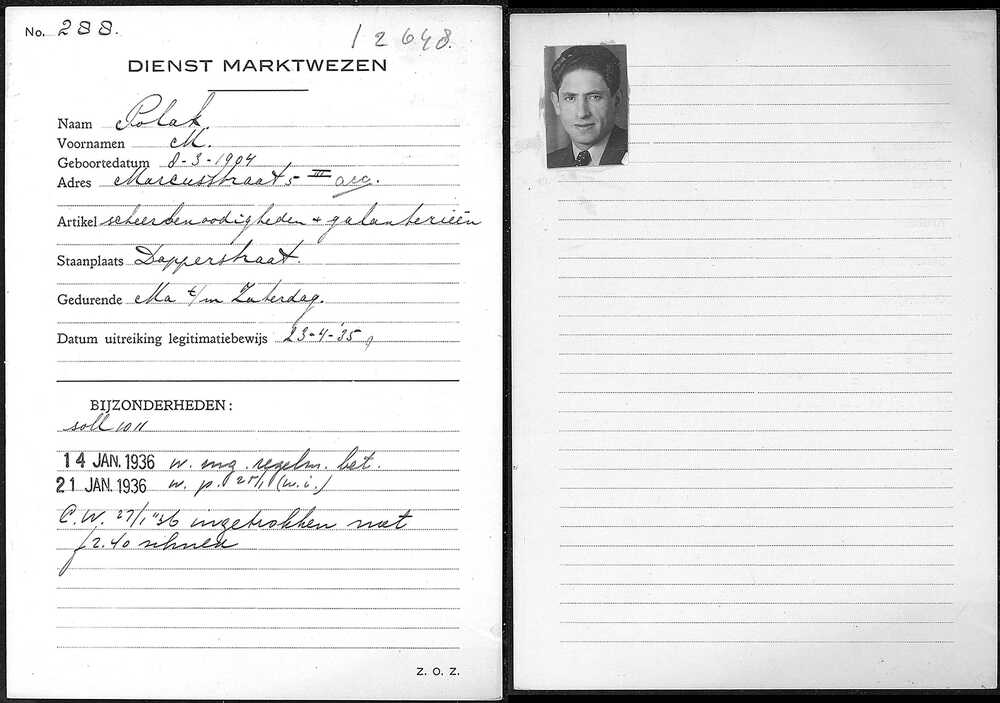 No. 288.
12648.
DIENST MARKTWEZEN
Naam Polak.
Voornamen M.
Geboortedatum 8-3-1904
Adres Marcusstraat 5 III
Artikel scheerbenoodigheden + galanterieën
Staanplaats Dapperstraat.
Gedurende Ma t/m Zaterdag.
Datum uitreiking legitimatiebewijs 23-4-'35
BIJZONDERHEDEN:
soll 1011
14 JAN. 1936 w. mg. regelm. bet.
21 JAN. 1936 w. p. (w.i.)
C.W. 27/1 '36 ingetrokken met
f 2.40 schuld
Z. O. Z.